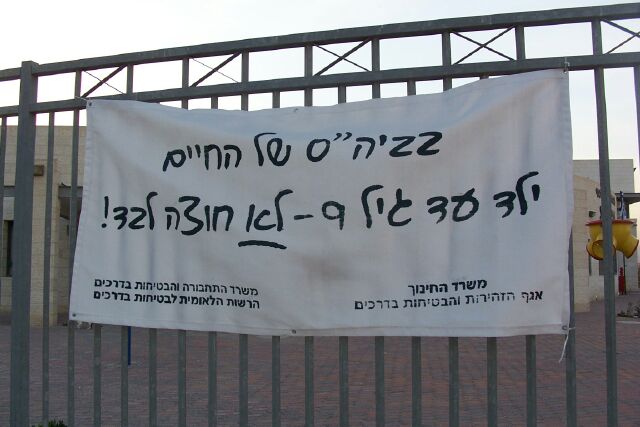 בביה"ס של החיים
ילד עד גיל 9 - לא חוצה לבד!
משרד החינוך
אגף הזהירות והבטיחות בדרכים
משרד התחבורה והבטיחות בדרכים
הרשות הלאומית לבטיחות בדרכים